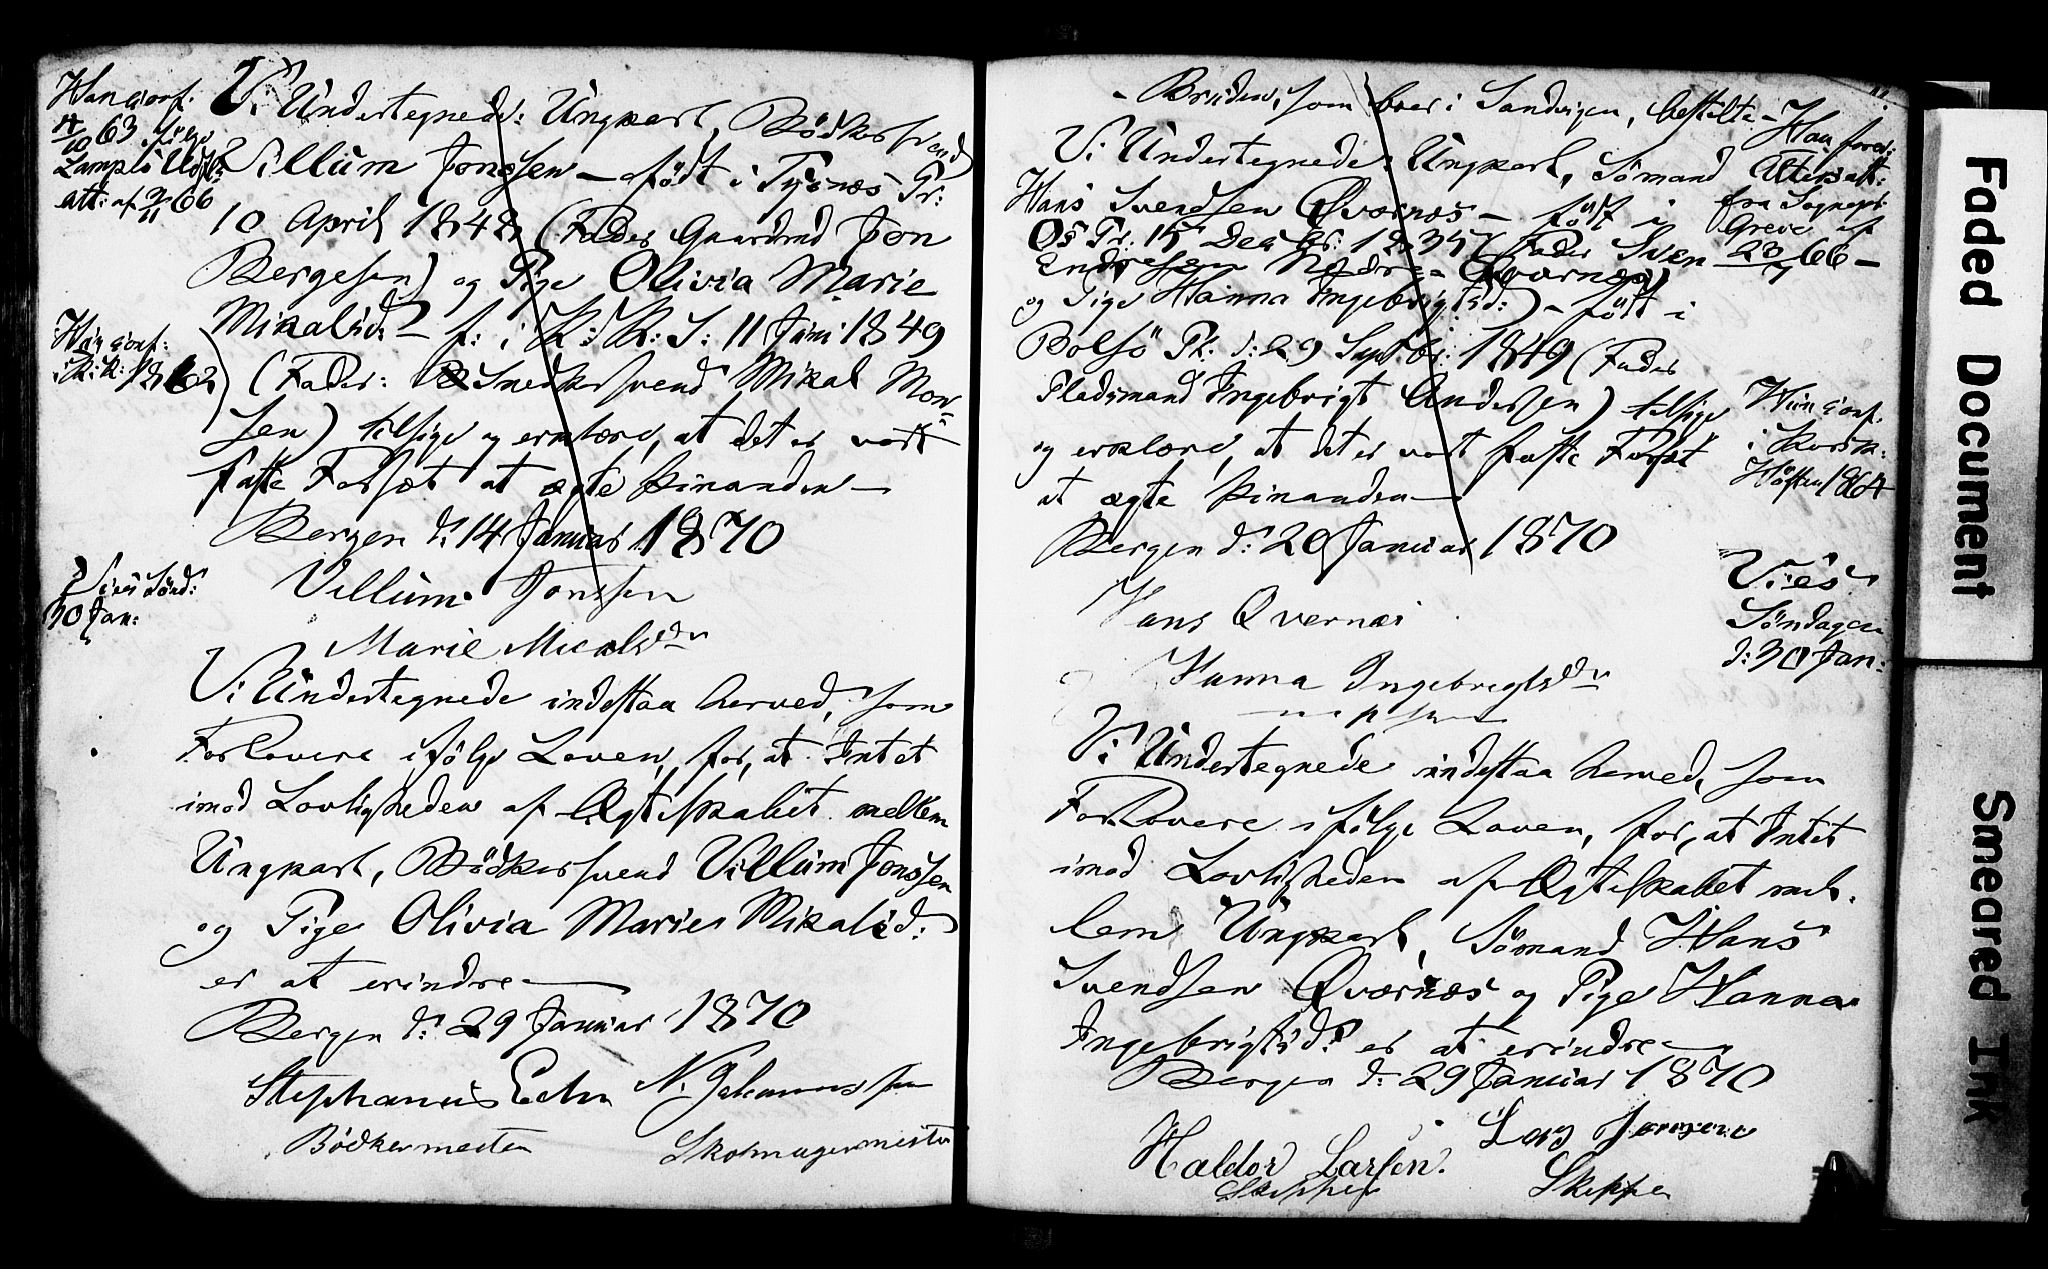 Han conf.
4/10 63 følge
Vi Undertegnede: Ungkarl, Bødkersvend
Villum Jonssen – født i Tysnæs Pr:
att: af 2/11 66
10 April 1848 (Fader Gaardmd Jon
Bergesen) og Pige Olivia Marie
Mikalsd: – f: i K: K: S: 11 Juni 1849
Hun conf:
i K: K: 1862
(Fader: Snedkersvend Mikal Mon-
sen) tilsige og erklære, at det er vort
faste Forsæt at ægte hinanden –
Bergen d: 14 Januar 1870
Vies Sönd:
30 Jan:
Villum Jonssen
Marie Micalsdr
Vi Undertegnede indestaa herved, som
Forlovere ifölge Loven, for, at Intet
imod Lovligheden af Ægteskabet mellem
Ungkarl, Bödkersvend Villum Jonssen
og Pige Olivia Marie Mikalsd:
er at erindre –
Bergen d: 29 Januar 1870
Stephanus N. Johannessen
Bödkermester Skomagermester
– Bruden, som boer i Sandvigen, bestilte –
Vi Undertegnede: Ungkarl, Sömand
Hans Svendsen Qværnæs – født i
Os Pr: 15 Decbr: 1835 (Fader Sven
Endresen Nedre Qværnæs)
og Pige Hanna Ingebrigtsd: – født i
Bolsö Pr: d: 29 Septbr: 1849 (Fader
Pladsmand Ingebrigt Andersen) tilsige
og erklære, at det er vort faste Forsæt
at ægte hinanden –
Bergen d: 20 Januar 1870
Han forev:
Altersatt:
fra Sognepr
Greve af
23/7 66 –
Hun conf.
i
Hösten 1864
Vies
Söndagen
d: 30 Jan:
Hans Qvernæs
Hanna Ingebregtsdr
Vi Undertegnede indestaa herved, som
Forlovere ifölge Loven, for, at Intet
imod Lovligheden af Ægteskabet mel-
lem Ungkarl, Sömand Hans
Svendsen Qværnæs og Pige Hanna
Ingebrigtsd: er at erindre –
Bergen d: 29 Januar 1870
Haldor Larsen. Lars
Skipper Skipper
Faded Document
Smeared Ink